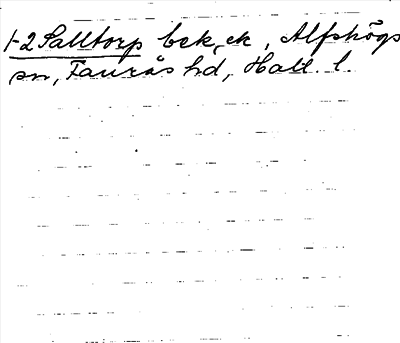 1-2 Salltorp bek, ek, Alfshögs
sn, Faurås hd, Hall. l.